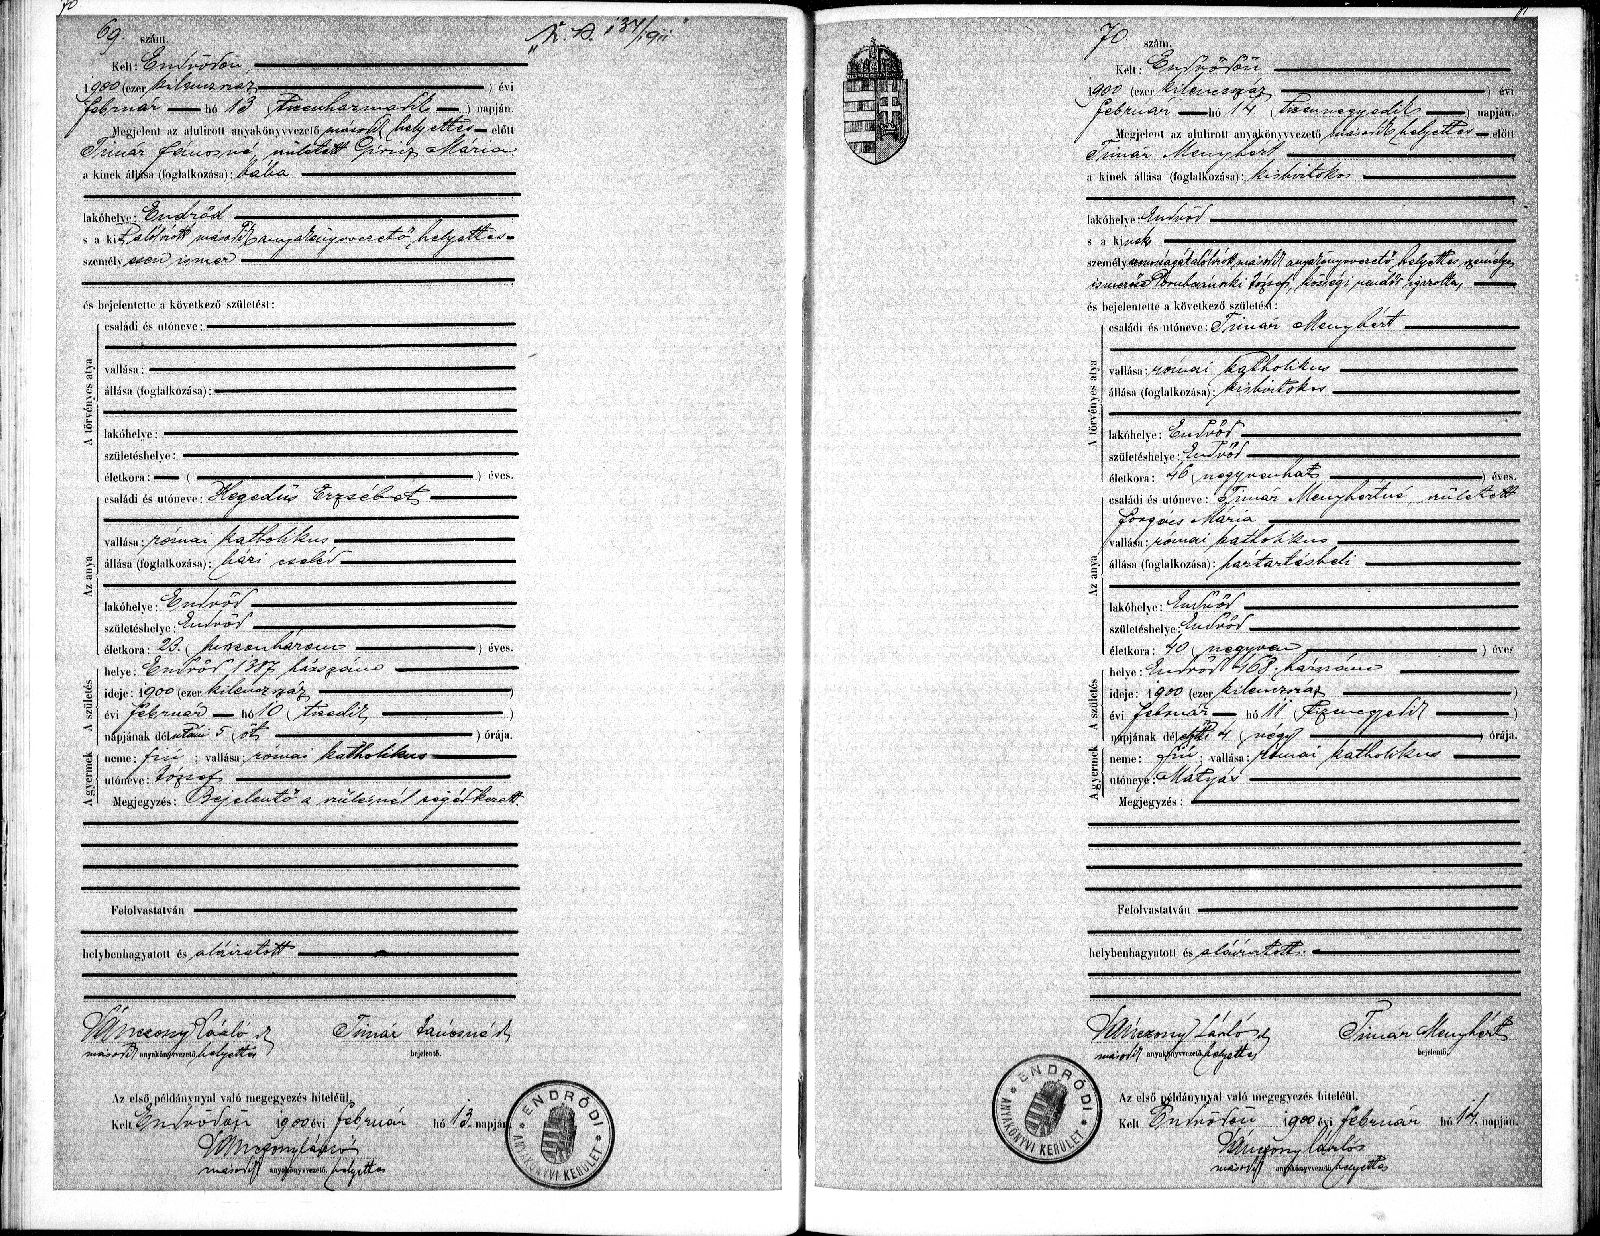 69. szám.
Kelt: Endrődön
1900 (ezer kilenczszáz ) évi
február hó 13 (tizenharmadik ) napján.
Megjelent az alulirott anyakönyvvezető második helyettes előtt
Timár Jánosné, született Mária
a kinek állása (foglalkozása): bába
lakóhelye: Endrőd
s a kit alólirott második anyakönyvvezető helyettes
személyesen ismer
és bejelentette a következő születést:
A törvényes atya
családi és utóneve:
vallása:
állása (foglalkozása):
lakóhelye:
születéshelye:
életkora: ( ) éves.
Az anya
családi és utóneve: Hegedüs Erzsébet
vallása: római katholikus
állása (foglalkozása): házi cseléd
lakóhelye: Endrőd
születéshelye: Endrőd
életkora: 23. (huszonhárom ) éves.
A születés
helye: Endrőd 1387 házszám
ideje: 1900 (ezer kilenczszáz )
évi február hó 10 (tizedik )
napjának délután 5 (öt ) órája.
A gyermek
neme: fiú ; vallása: római katholikus
utóneve: József
Megjegyzés: Bejelentő a szülésnél segédkezett.
Felolvastatván
helybenhagyatott és aláiratott
László Timár Jánosné
második anyakönyvvezető helyettes bejelentő.
Az első példánynyal való megegyezés hiteléül.
Kelt Endrődön 1900 évi február hó 13. napján.
László
második anyakönyvvezető helyettes
ENDRŐDI ANYAKÖNYVI KERÜLET
70 szám.
Kelt: Endrődön
1900 (ezer kilenczszáz ) évi
február hó 14 (tizennegyedik ) napján.
Megjelent az alulirott anyakönyvvezető második helyettes előtt
Timár Menyhért
a kinek állása (foglalkozása): kisbirtokos
lakóhelye: Endrőd
s a kinek
személyazonosságát alólirott második anyakönyvvezető helyettes személyes
ismerőse József, községi rendőr igazolta,
és bejelentette a következő születést:
A törvényes atya
családi és utóneve: Timár Menyhért
vallása: római katholikus
állása (foglalkozása): kisbirtokos
lakóhelye: Endrőd
születéshelye: Endrőd
életkora: 46 (negyvenhat ) éves.
Az anya
családi és utóneve: Timár Menyhértné, született
Forgács Mária
vallása: római katholikus
állása (foglalkozása): háztartásbeli
lakóhelye: Endrőd
születéshelye: Endrőd
életkora: 40 (negyven ) éves
A születés
helye: Endrőd 468. házszám
ideje: 1900 (ezer kilenczszáz )
évi február hó 11 (tizenegyedik )
napjának délelőtti 4 (négy ) órája.
A gyermek
neme: fiú ; vallása: római katholikus
utóneve: Mátyás
Megjegyzés:
Felolvastatván
helybenhagyatott és aláiratott.
László Timár Menyhért
második anyakönyvvezető helyettes bejelentő.
Az első példánynyal való megegyezés hiteléül.
Kelt Endrődön 1900 évi február hó 14. napján.
László
második anyakönyvvezető helyettes
ENDRŐDI ANYAKÖNYVI KERÜLET